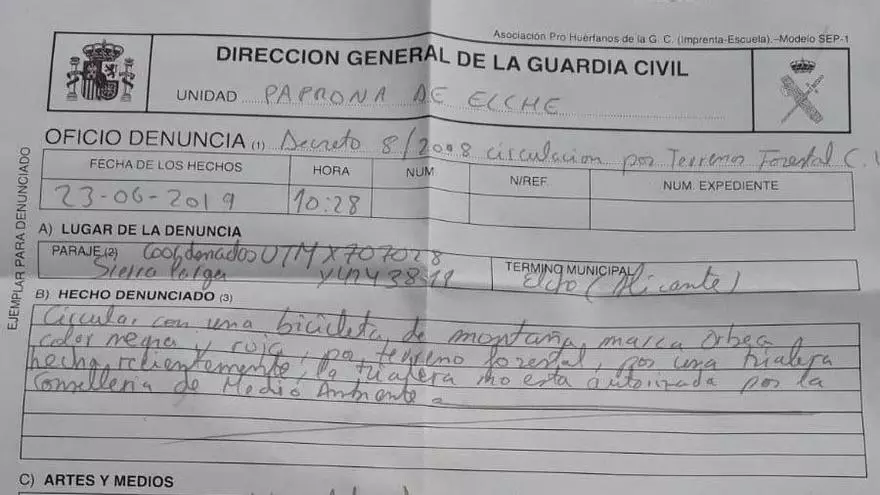 Asociación Pro Huérfanos de la G. C. (Imprenta-Escuela).–Modelo SEP-1
DIRECCION GENERAL DE LA GUARDIA CIVIL
UNIDAD PAPRONA DE ELCHE
OFICIO DENUNCIA (1) Decreto 8/2008 circulacion por Terrenos Forestal C.V
FECHA DE LOS HECHOS HORA NUM N/REF. NUM. EXPEDIENTE
23-06-2019 10:28
A) LUGAR DE LA DENUNCIA
PARAJE (2) Coordenadas UTM X707028
Sierra Larga
TERMINO MUNICIPAL
Elche (Alicante)
B) HECHO DENUNCIADO (3)
Circular con una bicicleta de montaña marca Orbea
color negra y roja, por terreno forestal, por una trialera
hecha recientemente, la trialera no esta autorizada por la
Conselleria de Medio Ambiente
C) ARTES Y MEDIOS
EJEMPLAR PARA DENUNCIADO